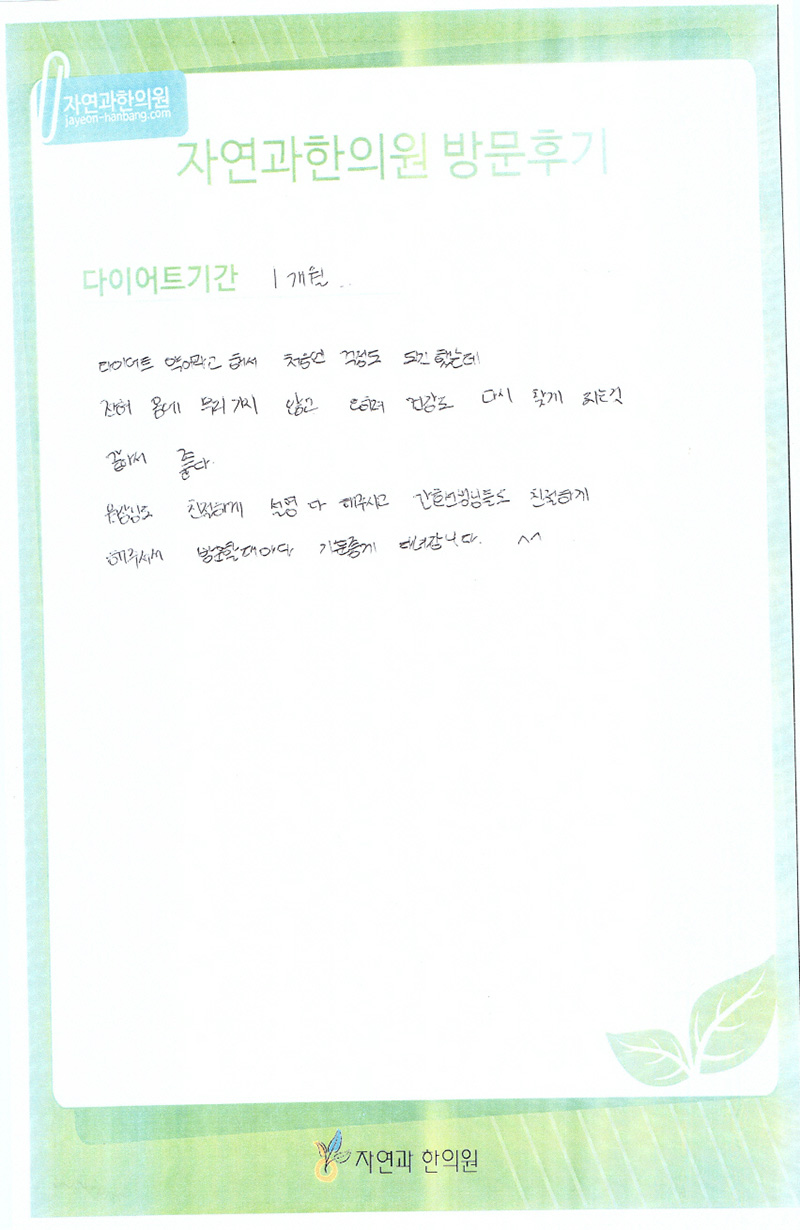 자연과한의원
jayeon-hanbang.com
자연과한의원 방문후기
다이어트기간 1개월..
다이어트 약이라고 해서 처음엔 걱정도 되긴 했는데
전혀 몸에 무리가지 않고 오히려 건강도 다시 찾게 되는것
같아서 좋다.
원장님도 친절하게 설명 다 해주시고 간호선생님들도 친절하게
해주셔서 방문할때마다 기분좋게 다녀갑니다. ^^
자연과 한의원